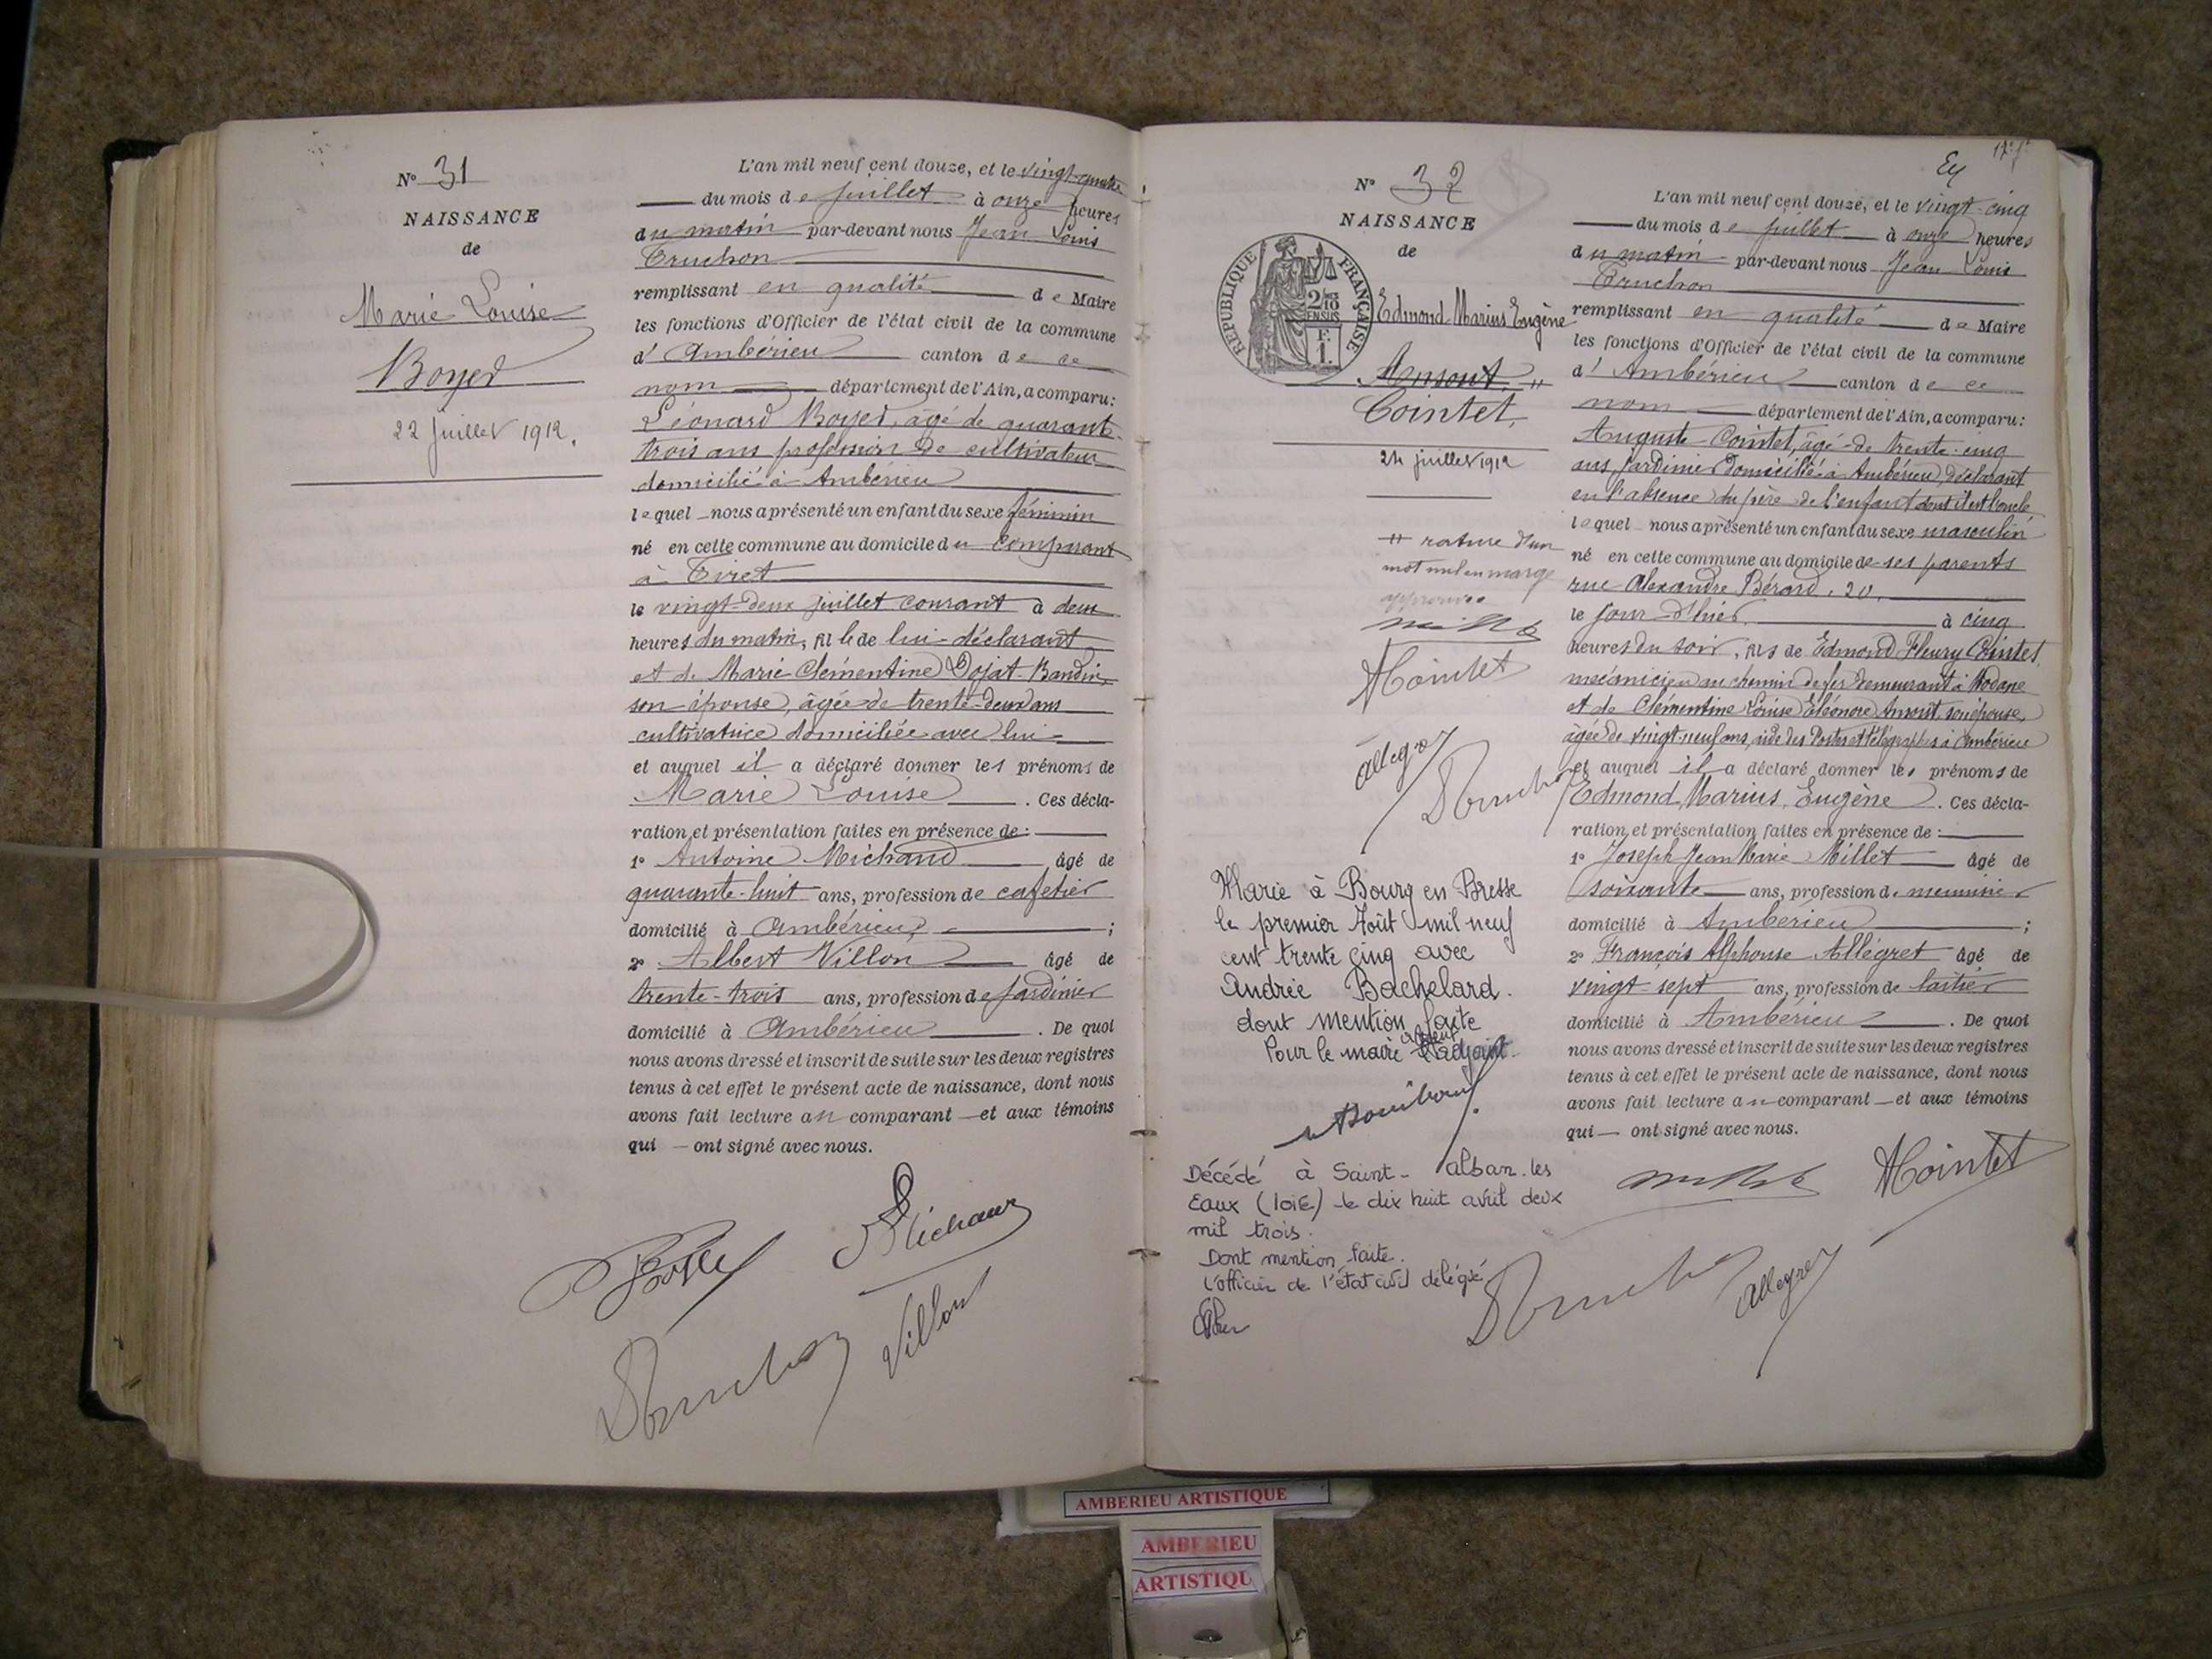 N° 31
NAISSANCE
de
Marie Louise
Boyer
22 Juillet 1912.
L'an mil neuf cent douze, et le vingt-quatre
du mois de Juillet à onze heures
du matin par-devant nous Jean Louis
Truchon
remplissant en qualité de Maire
les fonctions d'Officier de l'état civil de la commune
d'Ambérieu canton de ce
nom département de l'Ain, a comparu:
Léonard Boyer, âgé de quarante-
trois ans profession de cultivateur
domicilié à Ambérieu
lequel nous a présenté un enfant du sexe féminin
né en cette commune au domicile du comparant
à Tiret
le vingt-deux Juillet courant à deux
heures du matin, fille de lui-déclarant
et de Marie Clémentine
son épouse, âgée de trente-deux ans
cultivatrice domiciliée avec lui
et auquel il a déclaré donner les prénoms de
Marie Louise . Ces décla-
ration et présentation faites en présence de :
1° Antoine Michaud âgé de
quarante-huit ans, profession de cafetier
domicilié à Ambérieu ;
2° Albert Villon âgé de
trente-trois ans, profession de jardinier
domicilié à Ambérieu . De quoi
nous avons dressé et inscrit de suite sur les deux registres
tenus à cet effet le présent acte de naissance, dont nous
avons fait lecture au comparant et aux témoins
qui ont signé avec nous.
Michaud
Villon
Truchon
N° 32
NAISSANCE
de
RÉPUBLIQUE FRANÇAISE
Edmond Marius Eugène
Amont "
Cointet,
24 juillet 1912
" rature d'un
mot nul en marge
approuvée
ACointet
Allegret
Truchon
Marié à Bourg en Bresse
le premier Août mil neuf
cent trente cinq avec
Andrée Bachelard.
dont mention faite
Pour le maire absent l'adjoint
Décédé à Saint-Alban-les
Eaux (Loire) le dix huit avril deux
mil trois.
Dont mention faite.
L'officier de l'état civil délégué
L'an mil neuf cent douze, et le vingt-cinq
du mois de juillet à onze heures
du matin par-devant nous Jean Louis
Truchon
remplissant en qualité de Maire
les fonctions d'Officier de l'état civil de la commune
d'Ambérieu canton de ce
nom département de l'Ain, a comparu:
Auguste Cointet, âgé de trente-cinq
ans, Jardinier domicilié à Ambérieu, déclarant
en l'absence du père de l'enfant dont il est l'oncle
lequel nous a présenté un enfant du sexe masculin
né en cette commune au domicile de ses parents
rue Alexandre Bérard, 20.
le jour d'hier à cinq
heures du soir, fils de Edmond Fleury Cointet,
mécanicien au chemin de fer demeurant à Modane
et de Clémentine Louise Eléonore Amont, son épouse,
âgée de vingt-neuf ans, aide des Postes et télégraphes à Ambérieu
et auquel il a déclaré donner les prénoms de
Edmond, Marius, Eugène . Ces décla-
ration et présentation faites en présence de :
1° Joseph Jean Marie Millet âgé de
soixante ans, profession de menuisier
domicilié à Ambérieu ;
2° François Alphonse Allégret âgé de
vingt-sept ans, profession de laitier
domicilié à Ambérieu . De quoi
nous avons dressé et inscrit de suite sur les deux registres
tenus à cet effet le présent acte de naissance, dont nous
avons fait lecture au comparant et aux témoins
qui ont signé avec nous.
ACointet
Truchon
Allegret
AMBERIEU ARTISTIQUE
AMBERIEU
ARTISTIQU